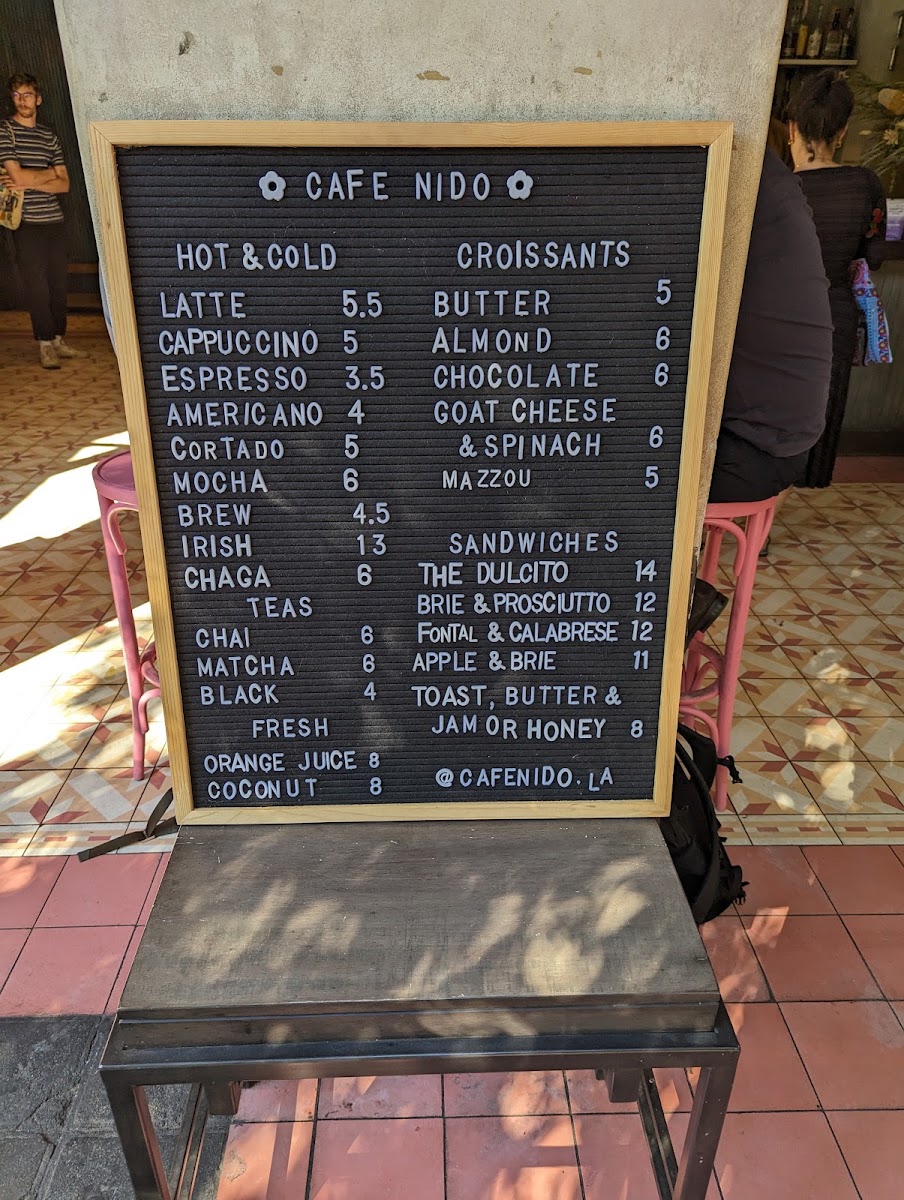 CAFE NIDO
HOT & COLD
LATTE 5.5
CAPPUCCINO 5
ESPRESSO 3.5
AMERICANO 4
CORTADO 5
MOCHA 6
BREW 4.5
IRISH 13
CHAGA 6
TEAS
CHAI 6
MATCHA 6
BLACK 4
FRESH
ORANGE JUICE 8
COCONUT 8
CROISSANTS
BUTTER 5
ALMOnD 6
CHOCOLATE 6
GOAT CHEESE
& SPINACH 6
MAZZOU 5
SANDWICHES
THE DULCITO 14
BRIE & PROSCIUTTO 12
FONTAL & CALABRESE 12
APPLE & BRIE 11
TOAST, BUTTER &
JAM OR HONEY 8
@CAFENIDO.LA